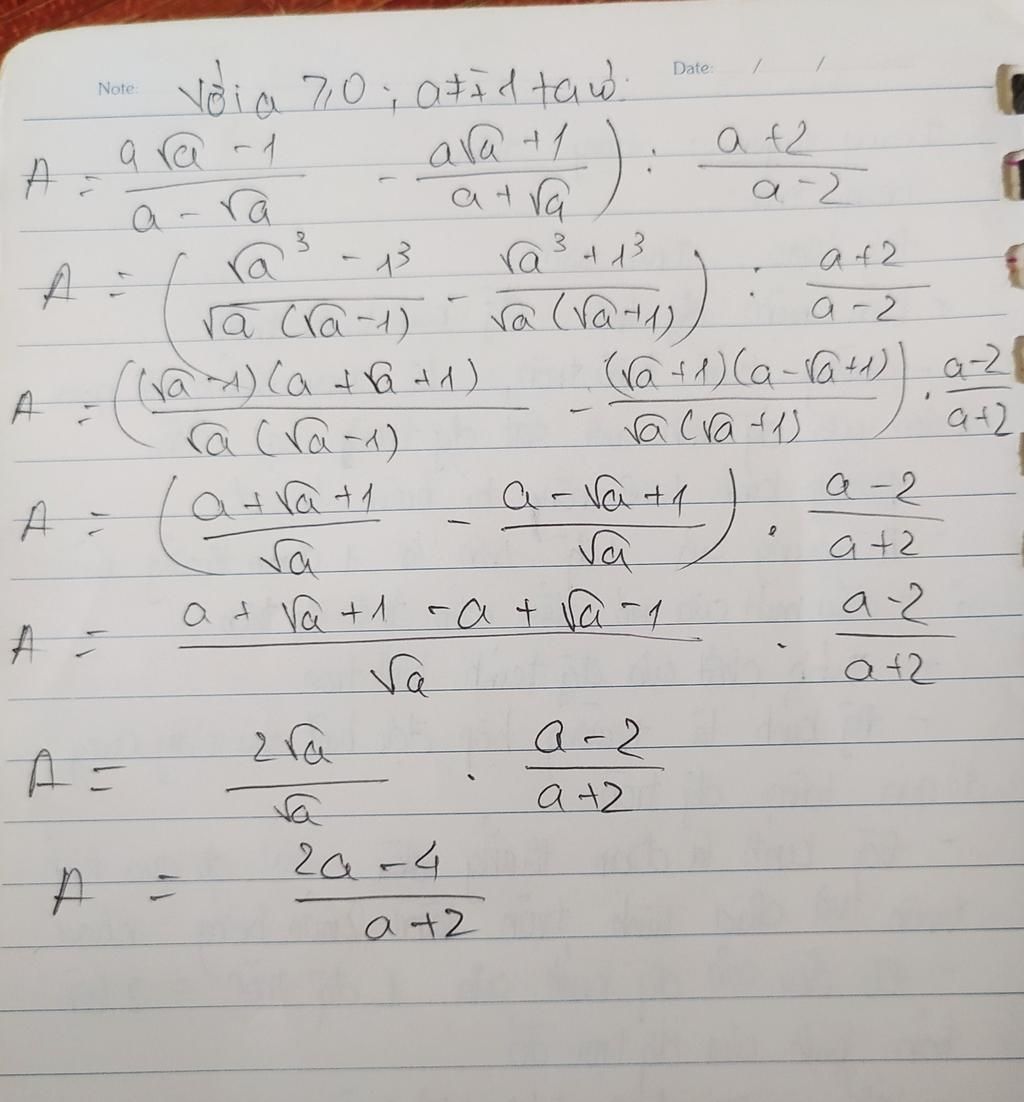 Note: Với a ⩾ 0 ; a ≠ ±1 ta có: Date: / /
A = \frac{a√a - 1}{a - √a} - \frac{a√a + 1}{a + √a} ) : \frac{a + 2}{a - 2}
A = ( \frac{√a^3 - 1^3}{√a (√a - 1)} - \frac{√a^3 + 1^3}{√a (√a + 1)} ) : \frac{a + 2}{a - 2}
A = ( \frac{(√a - 1)(a + √a + 1)}{√a (√a - 1)} - \frac{(√a + 1)(a - √a + 1)}{√a (√a + 1)} ) . \frac{a - 2}{a + 2}
A = ( \frac{a + √a + 1}{√a} - \frac{a - √a + 1}{√a} ) . \frac{a - 2}{a + 2}
A = \frac{a + √a + 1 - a + √a - 1}{√a} . \frac{a - 2}{a + 2}
A = \frac{2√a}{√a} . \frac{a - 2}{a + 2}
A = \frac{2a - 4}{a + 2}